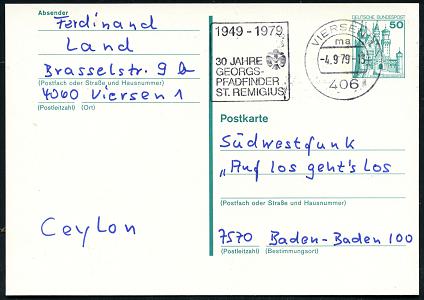 Absender
Ferdinand
Land
Brasselstr. 9b
(Postfach oder Straße und Hausnummer)
4060 Viersen 1
(Postleitzahl) (Ort)
Ceylon
1949-1979
30 JAHRE
GEORGS-
PFADFINDER
ST. REMIGIUS
VIERSEN
ma
-4.9.79-13
406
DEUTSCHE BUNDESPOST
50
Postkarte
Südwestfunk
„Auf los geht's los
(Postfach oder Straße und Hausnummer)
7570 Baden-Baden 100
(Postleitzahl) (Bestimmungsort)